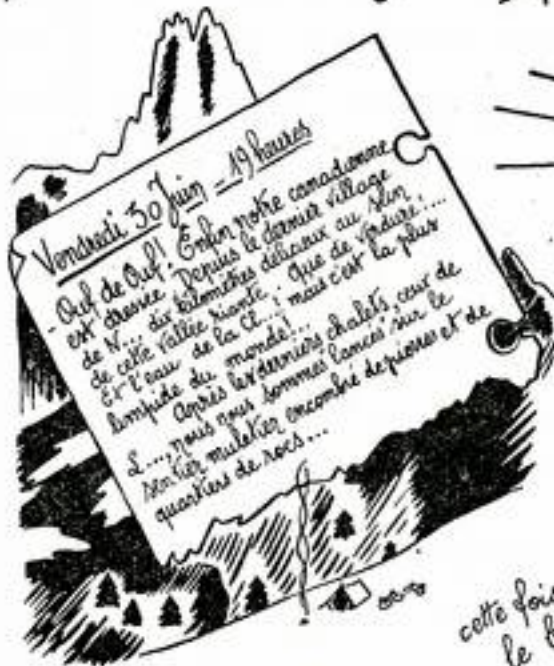 Vendredi 30 Juin _ 19 heures
- Ouf de Ouf! Enfin notre canadienne
est dressée! Depuis le dernier village
de N... dix kilomètres délicieux au sein
de cette vallée riante; que de verdure!...
Et l'eau de la Cl...; mais c'est la plus
limpide du monde!...
Après les derniers chalets, ceux de
L..., nous nous sommes lancés sur le
sentier muletier encombré de pierres et de
quartiers de rocs...
cette fois
le